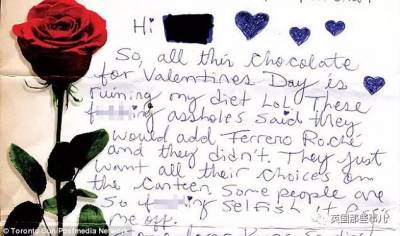 Hi
So, all this chocolate
for Valentines Day is
ruining my diet LoL. These
f ing assholes said they
would add Ferrero Roche
and they didn't. They just
want all their choices on
the Canteen. Some people are
So f ing Selfish it
me off.
© Toronto Sun/Postmedia Network
英国那些事儿